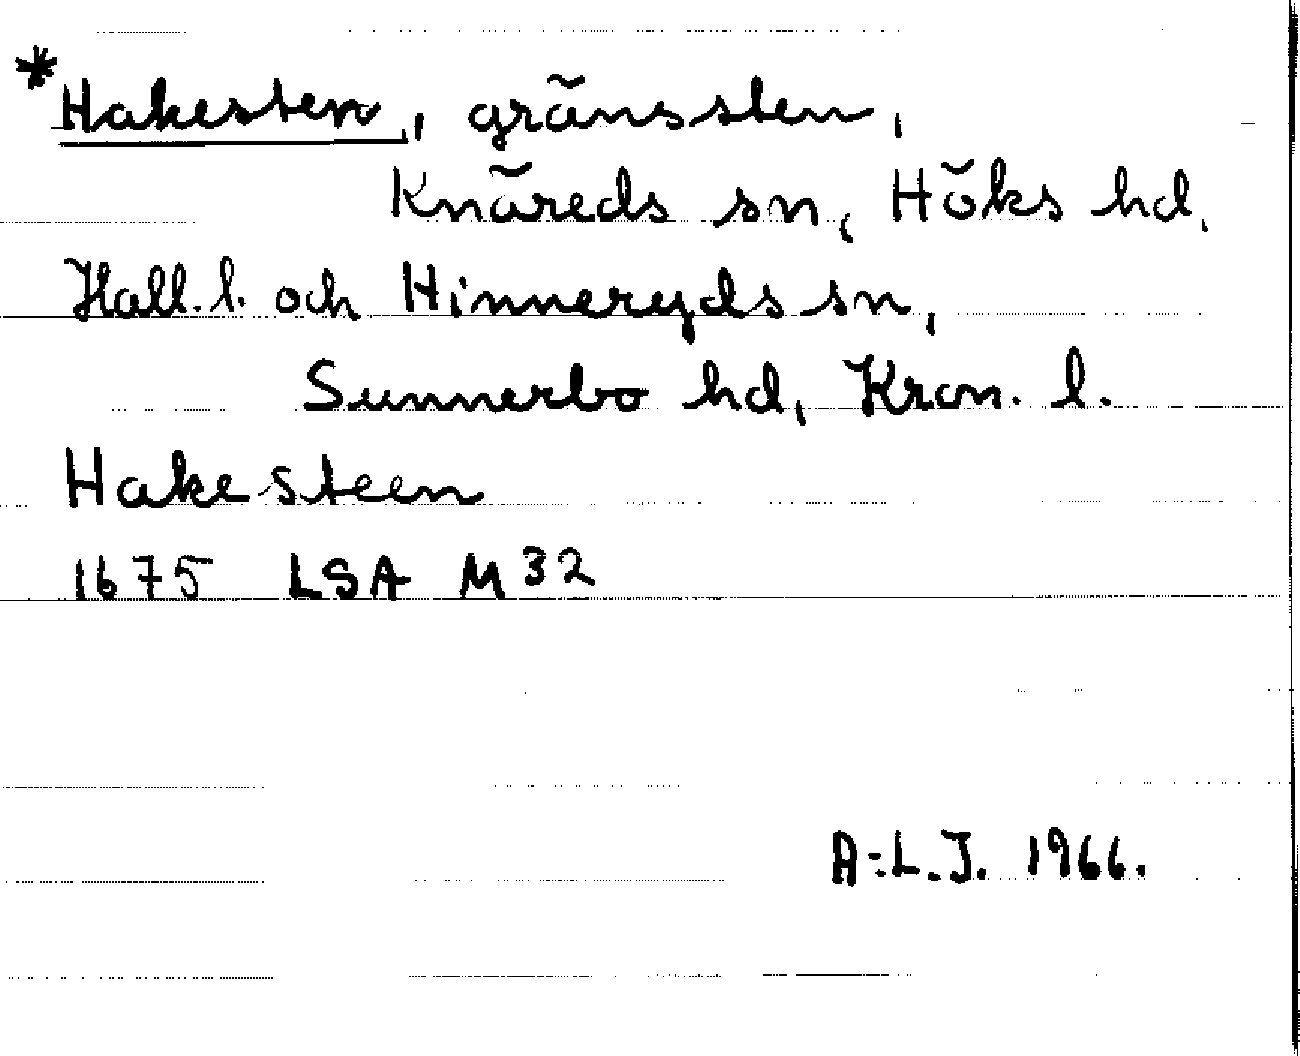 *Hakesten, gränssten,
Knäreds sn, Höks hd,
Hall. l. och Hinneryds sn,
Sunnerbo hd, Kron. l.
Hakesteen
1675 LSA M 32
A:L.J. 1966.